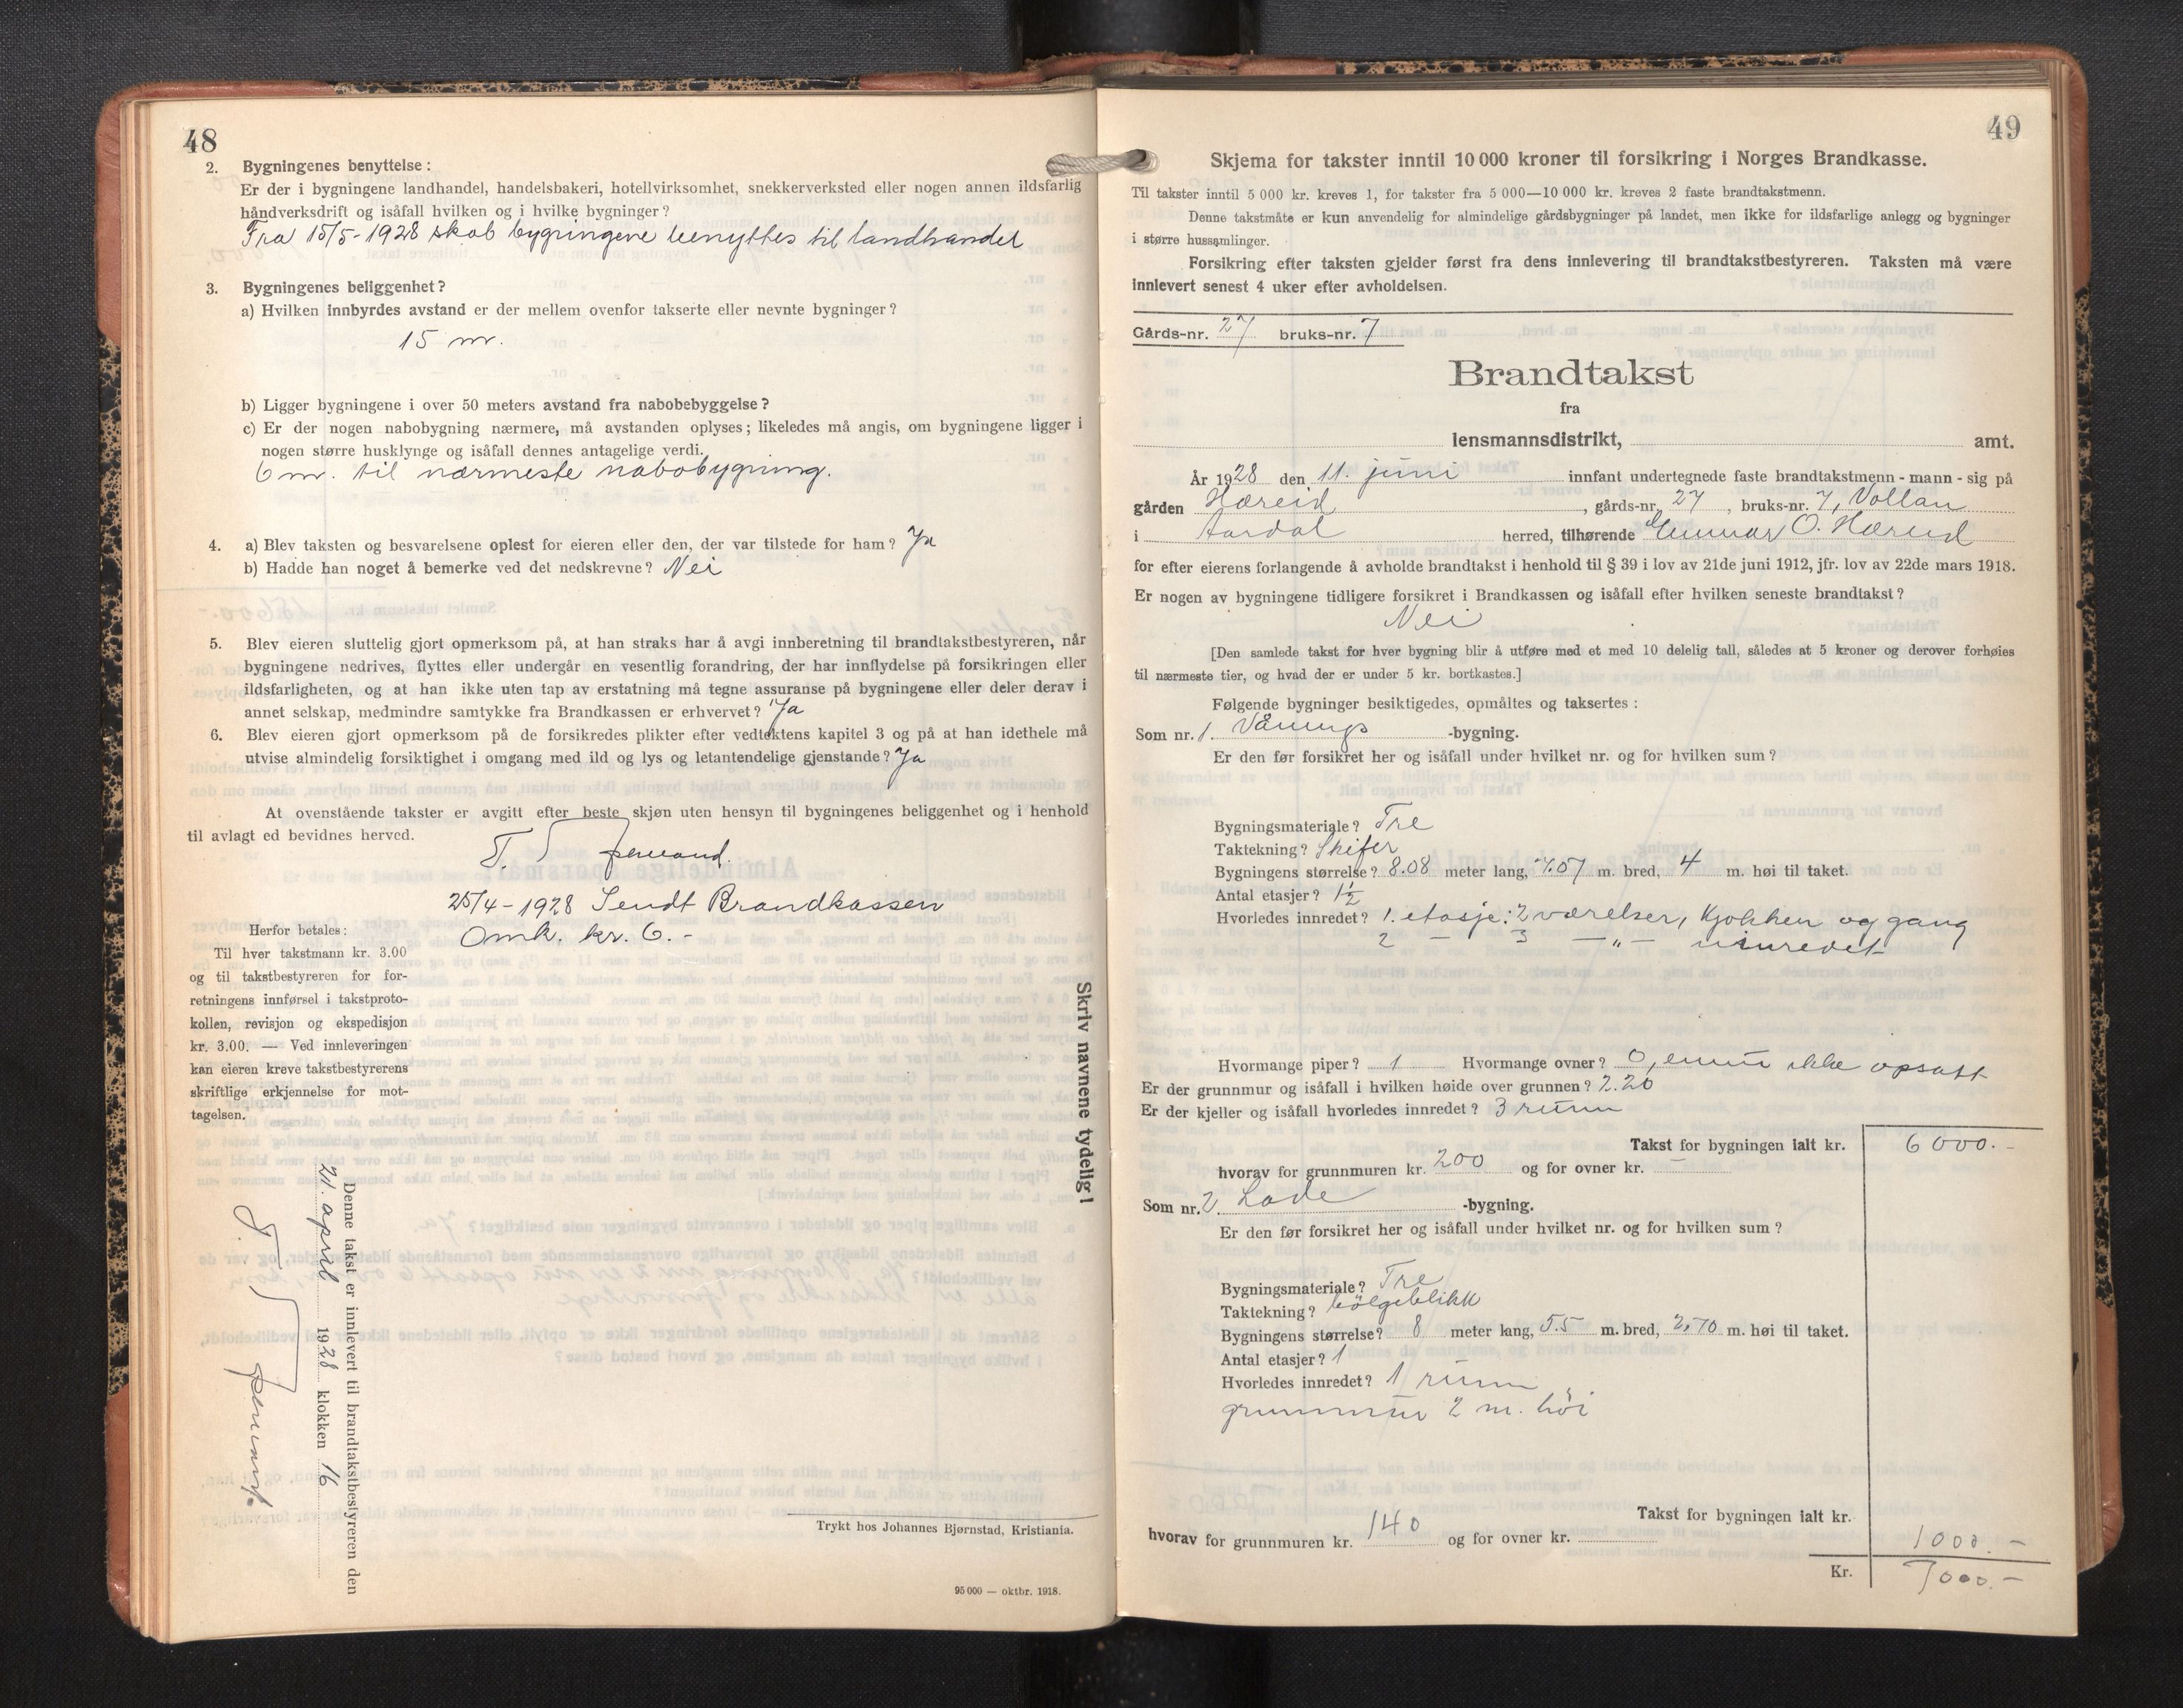 48
2. Bygningenes benyttelse:
Er der i bygningene landhandel, handelsbakeri, hotellvirksomhet, snekkerverksted eller nogen annen ildsfarlig
håndverksdrift og isåfall hvilken og i hvilke bygninger?
Fra 15/5-1928 skal bygningene benyttes til landhandel
3. Bygningenes beliggenhet?
a) Hvilken innbyrdes avstand er der mellem ovenfor takserte eller nevnte bygninger?
15 m.
b) Ligger bygningene i over 50 meters avstand fra nabobebyggelse?
c) Er der nogen nabobygning nærmere, må avstanden oplyses; likeledes må angis, om bygningene ligger i
nogen større husklynge og isåfall dennes antagelige verdi.
6 m. til nærmeste nabobygning.
4. a) Blev taksten og besvarelsene oplest for eieren eller den, der var tilstede for ham? Ja
b) Hadde han noget å bemerke ved det nedskrevne? Nei
5. Blev eieren sluttelig gjort opmerksom på, at han straks har å avgi innberetning til brandtakstbestyreren, når
bygningene nedrives, flyttes eller undergår en vesentlig forandring, der har innflydelse på forsikringen eller
ildsfarligheten, og at han ikke uten tap av erstatning må tegne assuranse på bygningene eller deler derav i
annet selskap, medmindre samtykke fra Brandkassen er erhvervet? Ja
6. Blev eieren gjort opmerksom på de forsikredes plikter efter vedtektens kapitel 3 og på at han idethele må
utvise almindelig forsiktighet i omgang med ild og lys og letantendelige gjenstande? Ja
At ovenstående takster er avgitt efter beste skjøn uten hensyn til bygningenes beliggenhet og i henhold
til avlagt ed bevidnes herved.
25/4-1928 Sendt Brandkassen
Omk. kr. 6.-
Herfor betales:
Til hver takstmann kr. 3.00
og til takstbestyreren for for-
retningens innførsel i takstproto-
kollen, revisjon og ekspedisjon
kr. 3.00. — Ved innleveringen
kan eieren kreve takstbestyrerens
skriftlige erkjennelse for mot-
tagelsen.
Skriv navnene tydelig!
Denne takst er innlevert til brandtakstbestyreren den
24. april 1928 klokken 16
Trykt hos Johannes Bjørnstad, Kristiania.
95 000 — oktbr. 1918.
49
Skjema for takster inntil 10 000 kroner til forsikring i Norges Brandkasse.
Til takster inntil 5 000 kr. kreves 1, for takster fra 5 000—10 000 kr. kreves 2 faste brandtakstmenn.
Denne takstmåte er kun anvendelig for almindelige gårdsbygninger på landet, men ikke for ildsfarlige anlegg og bygninger
i større hussamlinger.
Forsikring efter taksten gjelder først fra dens innlevering til brandtakstbestyreren. Taksten må være
innlevert senest 4 uker efter avholdelsen.
Gårds-nr. 27 bruks-nr. 7
Brandtakst
fra
lensmannsdistrikt, amt.
År 1928 den 11. juni innfant undertegnede faste brandtakstmenn - mann - sig på
gården Hæreid, gårds-nr. 27, bruks-nr. 7, Vollan
i Aardal herred, tilhørende Gunnar O. Hæreid
for efter eierens forlangende å avholde brandtakst i henhold til § 39 i lov av 21de juni 1912, jfr. lov av 22de mars 1918.
Er nogen av bygningene tidligere forsikret i Brandkassen og isåfall efter hvilken seneste brandtakst?
Nei
[Den samlede takst for hver bygning blir å utføre med et med 10 delelig tall, således at 5 kroner og derover forhøies
til nærmeste tier, og hvad der er under 5 kr. bortkastes.]
Følgende bygninger besiktigedes, opmåltes og taksertes:
Som nr. 1. Vånings -bygning.
Er den før forsikret her og isåfall under hvilket nr. og for hvilken sum?
Bygningsmateriale? Tre
Taktekning? Skifer
Bygningens størrelse? 8.08 meter lang, 7.07 m. bred, 4 m. høi til taket.
Antal etasjer? 1½
Hvorledes innredet? 1. etasje: 2 værelser, kjøkken og gang
2 — 3 —„— uinredet
Hvormange piper? 1 Hvormange ovner? 0, ennu ikke opsatt
Er der grunnmur og isåfall i hvilken høide over grunnen? 2.20
Er der kjeller og isåfall hvorledes innredet? 3 rum
Takst for bygningen ialt kr. 6000.-
hvorav for grunnmuren kr. 200 og for ovner kr. —
Som nr. 2 Løde -bygning.
Er den før forsikret her og isåfall under hvilket nr. og for hvilken sum?
Bygningsmateriale? Tre
Taktekning? bölgeblikk
Bygningens størrelse? 8 meter lang, 5.5 m. bred, 2,70 m. høi til taket.
Antal etasjer? 1
Hvorledes innredet? 1 rum
grunnmur 2 m. höi
Takst for bygningen ialt kr. 1000.-
hvorav for grunnmuren kr. 140 og for ovner kr.
Kr. 7000.-